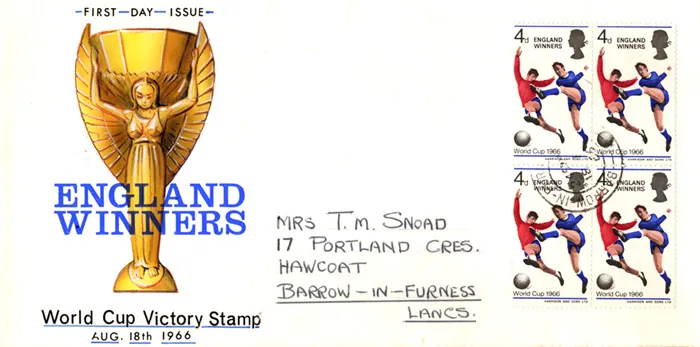 -FIRST-DAY-ISSUE-
ENGLAND
WINNERS
World Cup Victory Stamp
AUG. 18th 1966
MRS T. M. SNOAD
17 PORTLAND CRES.
HAWCOAT
BARROW-IN-FURNESS
LANCS.
4d ENGLAND
WINNERS
World Cup 1966
HARRISON AND SONS LTD
4d ENGLAND
WINNERS
World Cup 1966
HARRISON AND SONS LTD
4d ENGLAND
WINNERS
World Cup 1966
HARRISON AND SONS LTD
4d ENGLAND
WINNERS
World Cup 1966
HARRISON AND SONS LTD
BARROW-IN-FUR